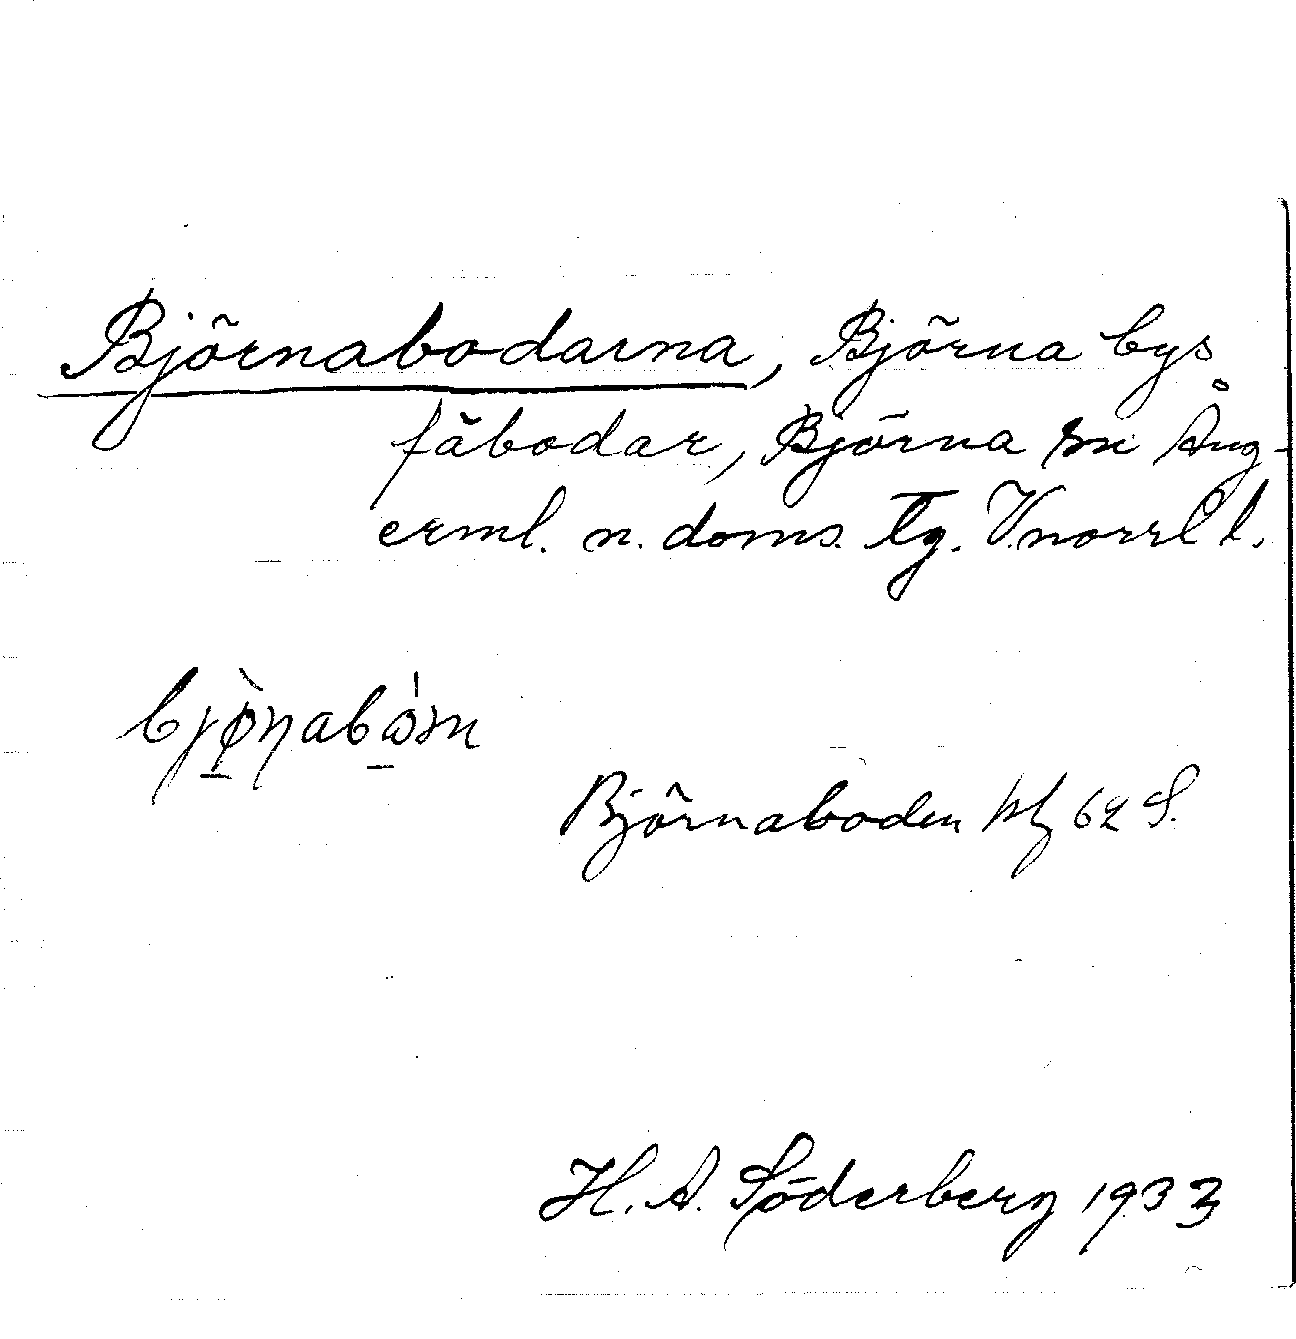 Björnabodarna, Björna bys
fäbodar, Björna sn Ång-
erml. n. doms. tg. V.norrl l.
Björnaboden bl 62 S.
H. A. Söderberg 1933